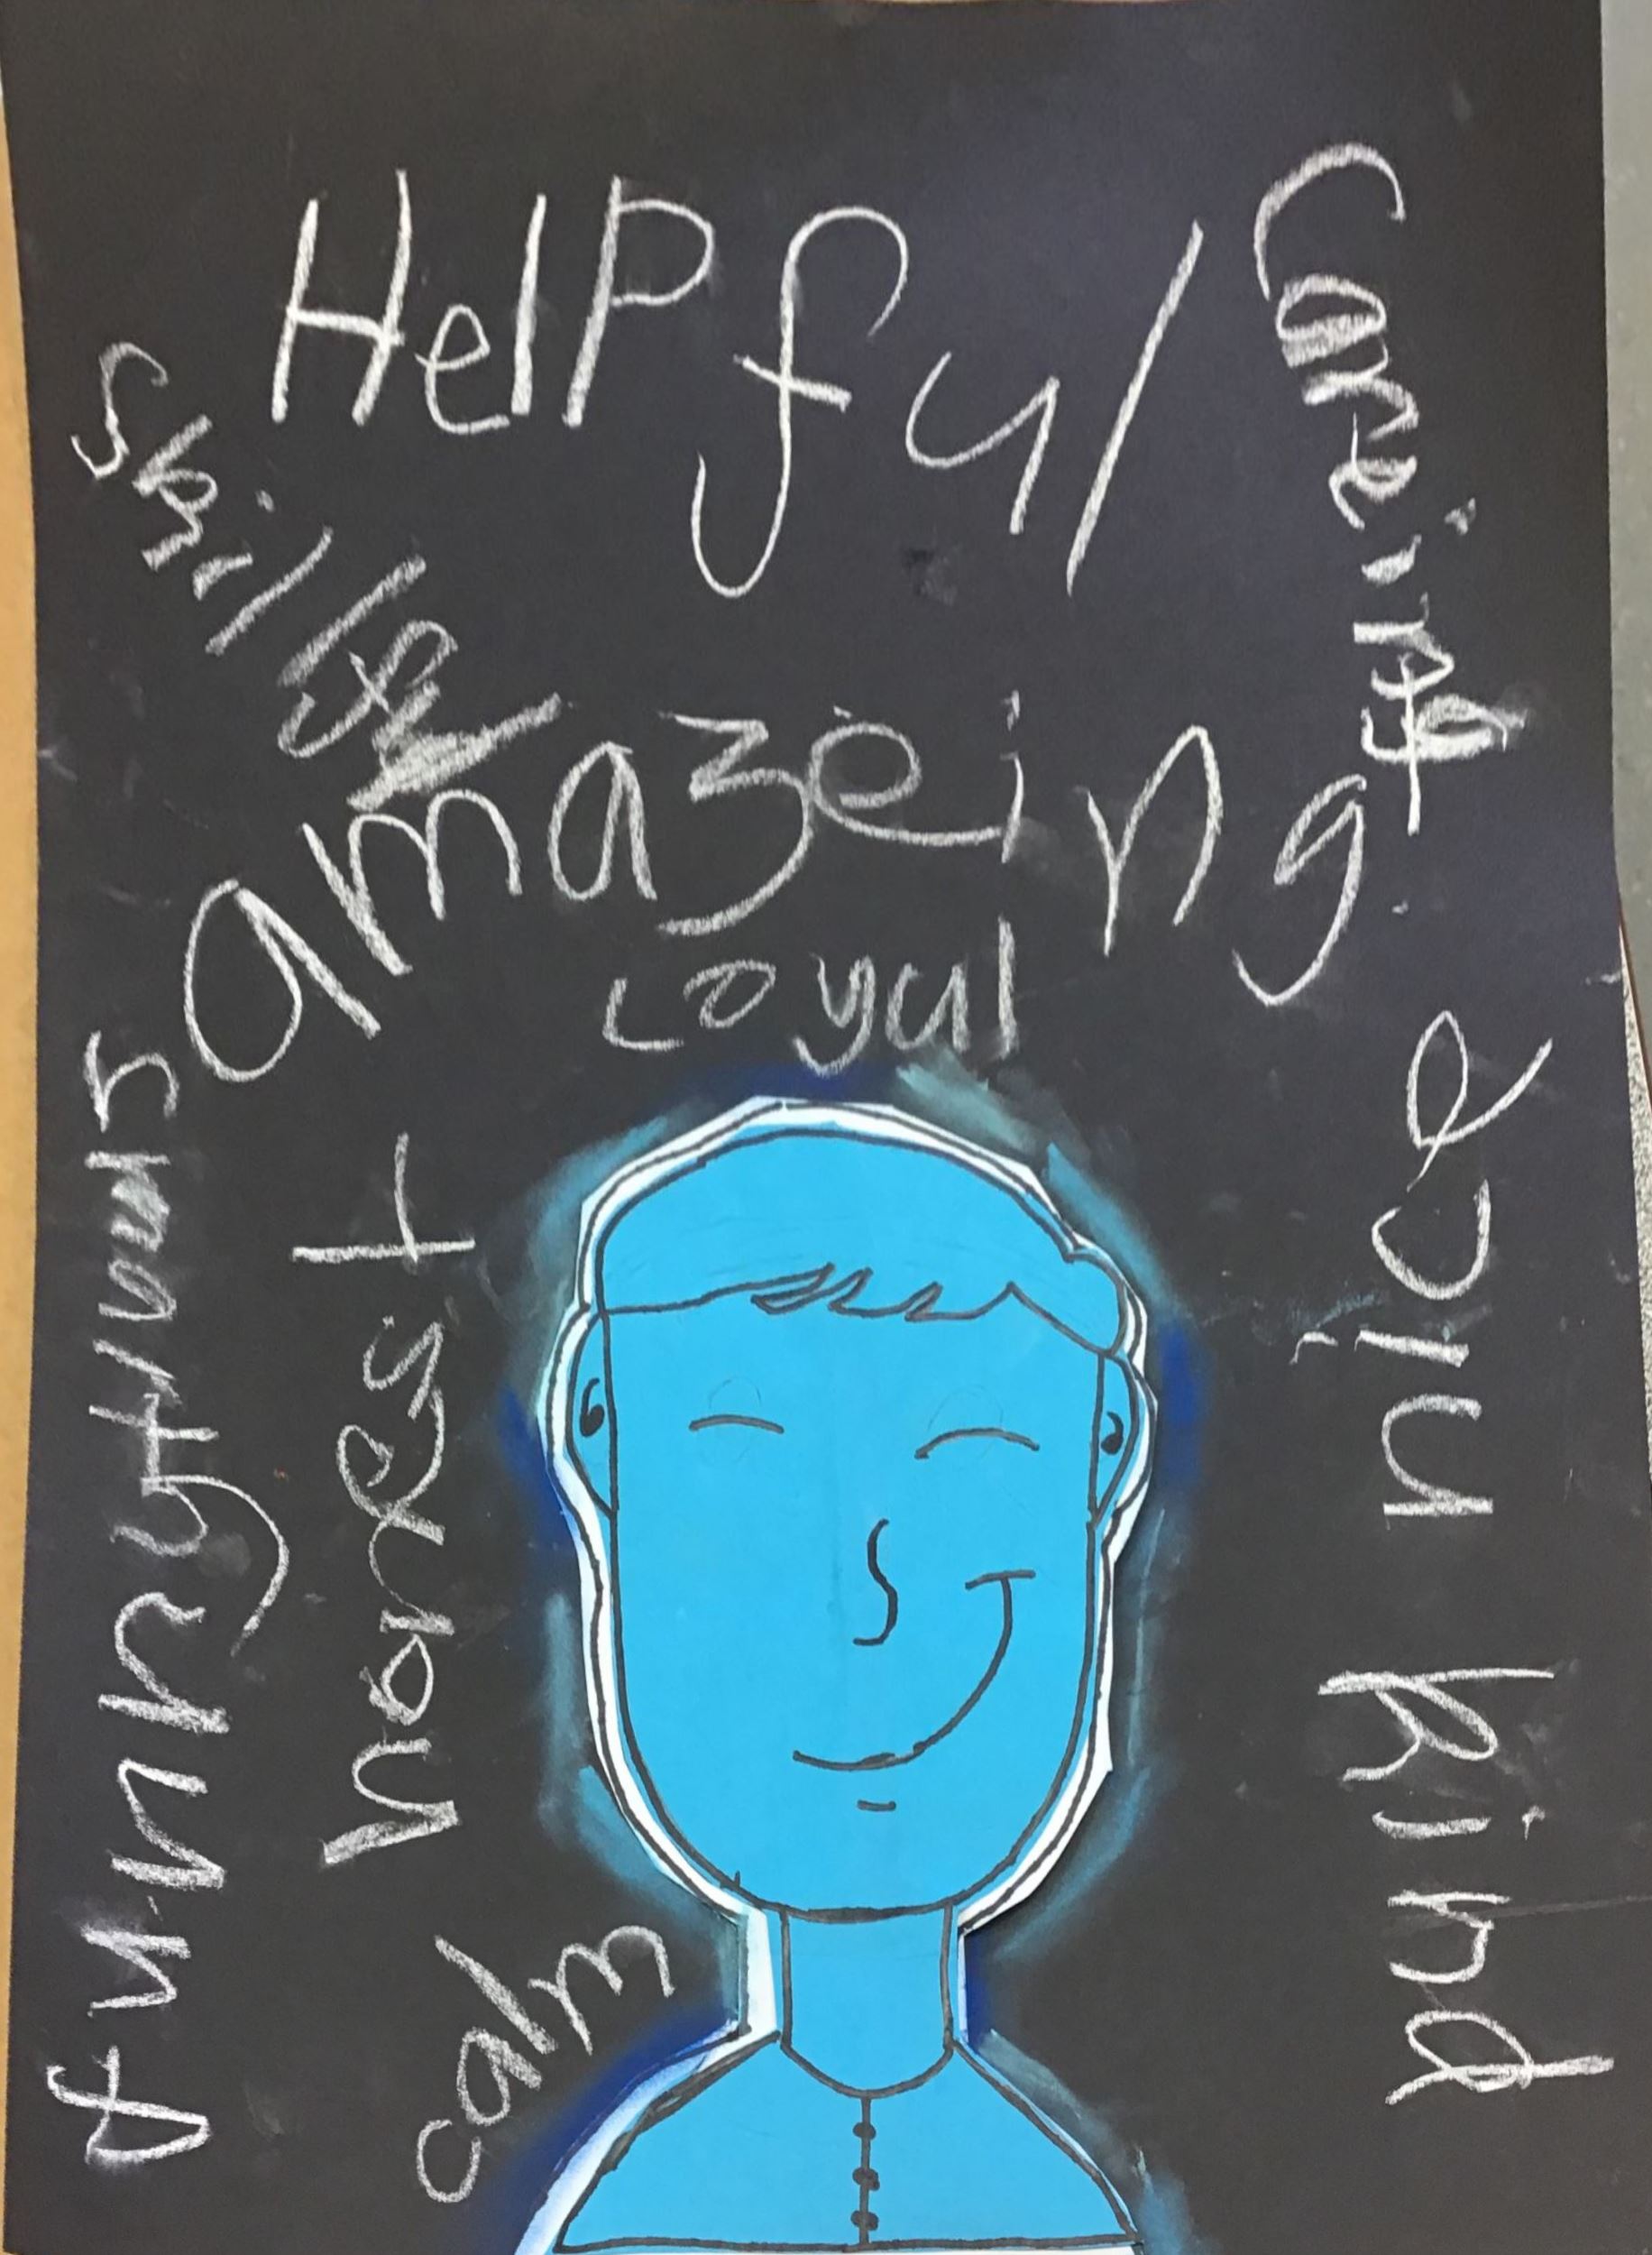 HelPful
Careing
amazeing
Loyul
honest
funny
nice
kind
calm